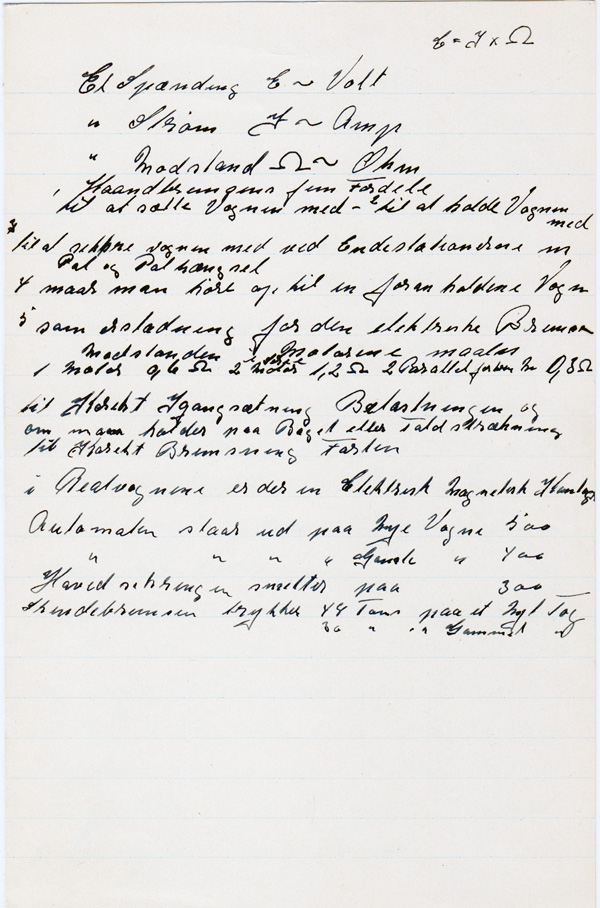 E = I x Ω
El Spænding E ~ Volt
" Strøm I ~ Amp
" Modstand Ω ~ Ohm
1 Haandbremsens fem Fordele
til at sætte Vognen med - 2 til at holde Vognen
med
3 til at sikre vognen med ved Endestationerne m
Pal og Palhængsel
4 maar man køre op til en foran holdene Vogn
5 som erstadning for den elektriske Bremse
Modstanden i Motorene maales
1 Motor 0,6 Ω 2 Motor 1,2 Ω 2 Parallel 0,3 Ω
til Korekt Igangsætning Belastningen og
om man holder paa Baget eller Faldstrækning
til Korekt Bremsning Farten
i Bealvognene er der en Elektrisk Magnetisk
Automaten slaar ud paa Nye Vogne 500
" " " " Gamle " 400
Hovedsikringen smelter paa 300
Skindebremsen trykker 44 Tons paa et Nyt Tog
30 " " " Gammelt "